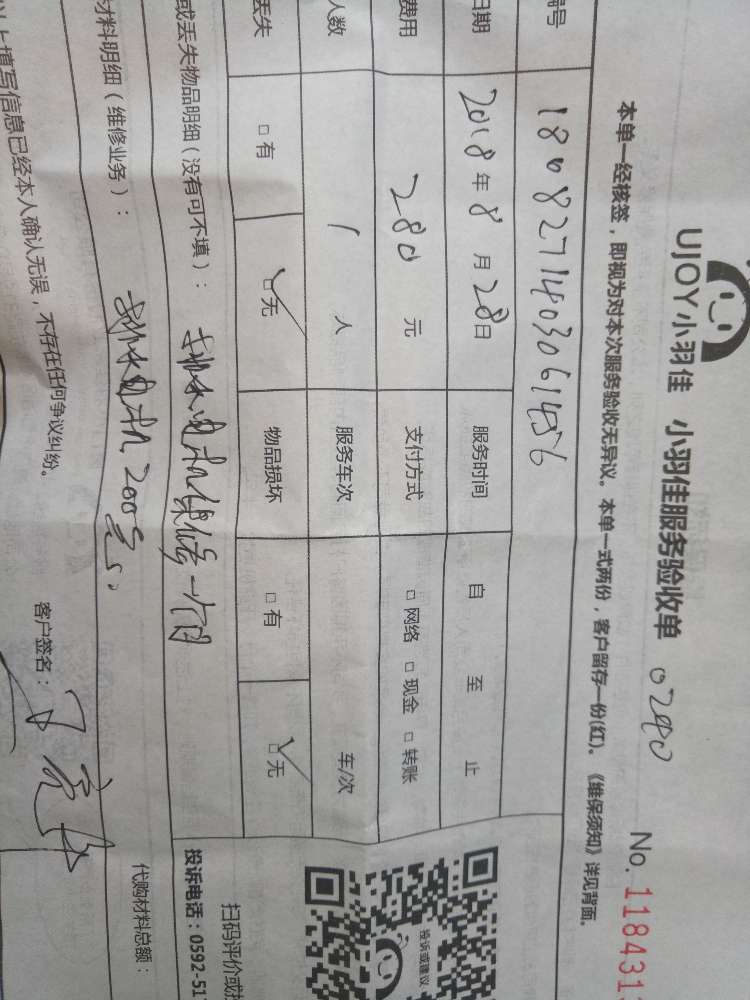 UJOY小羽佳 小羽佳服务验收单 0240
No. 1184313
本单一经核签，即视为对本次服务验收无异议。本单一式两份，客户留存一份(红)。《维保须知》详见背面。
编号 1808271403061456
日期 2018年8月28日 服务时间 自 至 止
费用 280元 支付方式 □网络 □现金 □转账
人数 1人 服务车次 车/次
丢失 □有 □无 物品损坏 □有 □无
或丢失物品明细（没有可不填）： 一个月
材料明细（维修业务）： 200元。
代购材料总额：
以上填写信息已经本人确认无误，不存在任何争议纠纷。 客户签名：
投诉或建议
扫码评价或投
投诉电话：0592-51